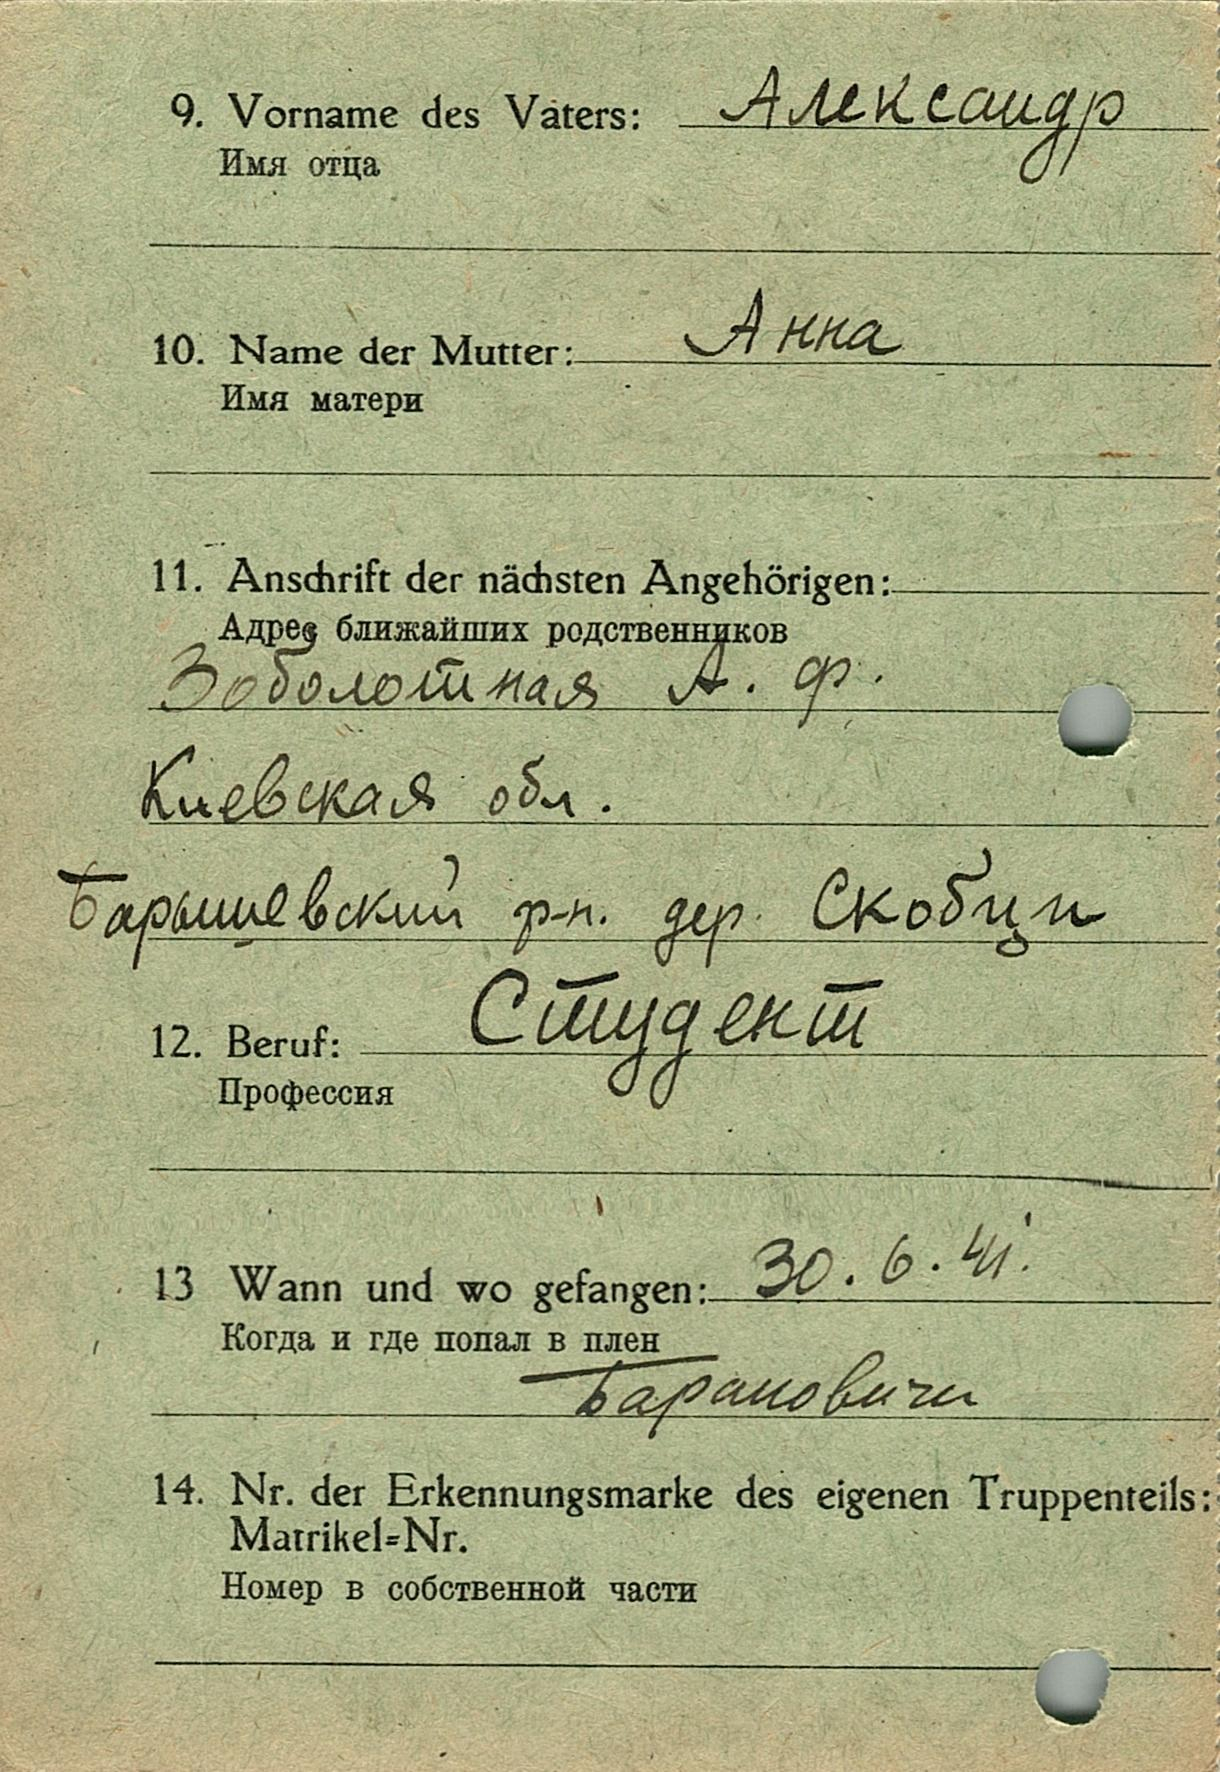 9. Vorname des Vaters: Александр
Имя отца
10. Name der Mutter: Анна
Имя матери
11. Anschrift der nächsten Angehörigen:
Адрес ближайших родственников
Зоболотная А. Ф.
Киевская обл.
Барышевский р-н. дер. Скобци
Студент
12. Beruf:
Профессия
13 Wann und wo gefangen: 30. 6. 41.
Когда и где попал в плен
Барановичи
14. Nr. der Erkennungsmarke des eigenen Truppenteils:
Matrikel=Nr.
Номер в собственной части